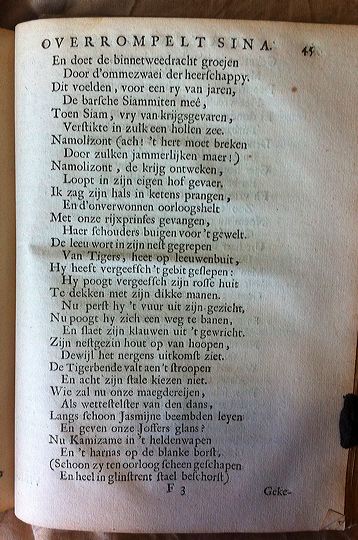 OVERROMPELT SINA. 45
En doet de binnetweedracht groejen
Door d'ommezwaei der heerschappy.
Dit voelden, voor een ry van jaren,
De barsche Siammiten meê,
Toen Siam, vry van krijgsgevaren,
Verstikte in zulk een hollen zee.
Namolizont (ach! 't hert moet breken
Door zulken jammerlijken maer!)
Namolizont, de krijg ontweken,
Loopt in zijn eigen hof gevaer.
Ik zag zijn hals in ketens prangen,
En d'onverwonnen oorloogshelt
Met onze rijxprinses gevangen,
Haer schouders buigen voor 't gewelt.
De leeu wort in zijn nest gegrepen
Van Tigers, heet op leeuwenbuit,
Hy heeft vergeefsch 't gebit geslepen:
Hy poogt vergeefsch zijn rosse huit
Te dekken met zijn dikke manen.
Nu perst hy 't vuur uit zijn gezicht,
Nu poogt hy zich een weg te banen,
En slaet zijn klauwen uit 't gewricht.
Zijn nestgezin hout op van hoopen,
Dewijl het nergens uitkomst ziet.
De Tigerbende valt aen 't stroopen
En acht zijn stale kiezen niet.
Wie zal nu onze maegdereijen,
Als wettestelster van den dans,
Langs schoon Jasmijne beembden leyen
En geven onze Joffers glans?
Nu Kamizame in 't heldenwapen
En 't harnas op de blanke borst,
(Schoon zy ten oorloog scheen geschapen
En heel in glinstrent stael beschorst)
F 3 Geke-